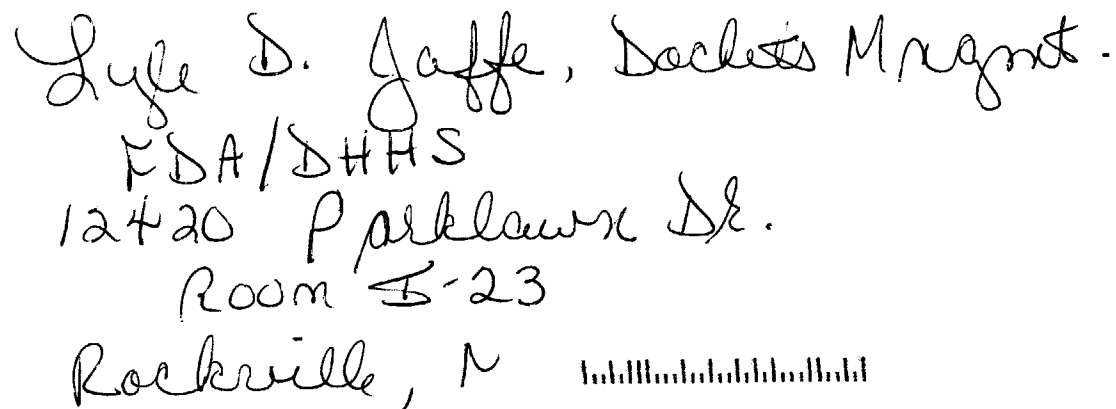 Lyle D. Jaffe, Dockets Mrgmt.
FDA/DHHS
12420 Parklawn Dr.
Room I-23
Rockville, M